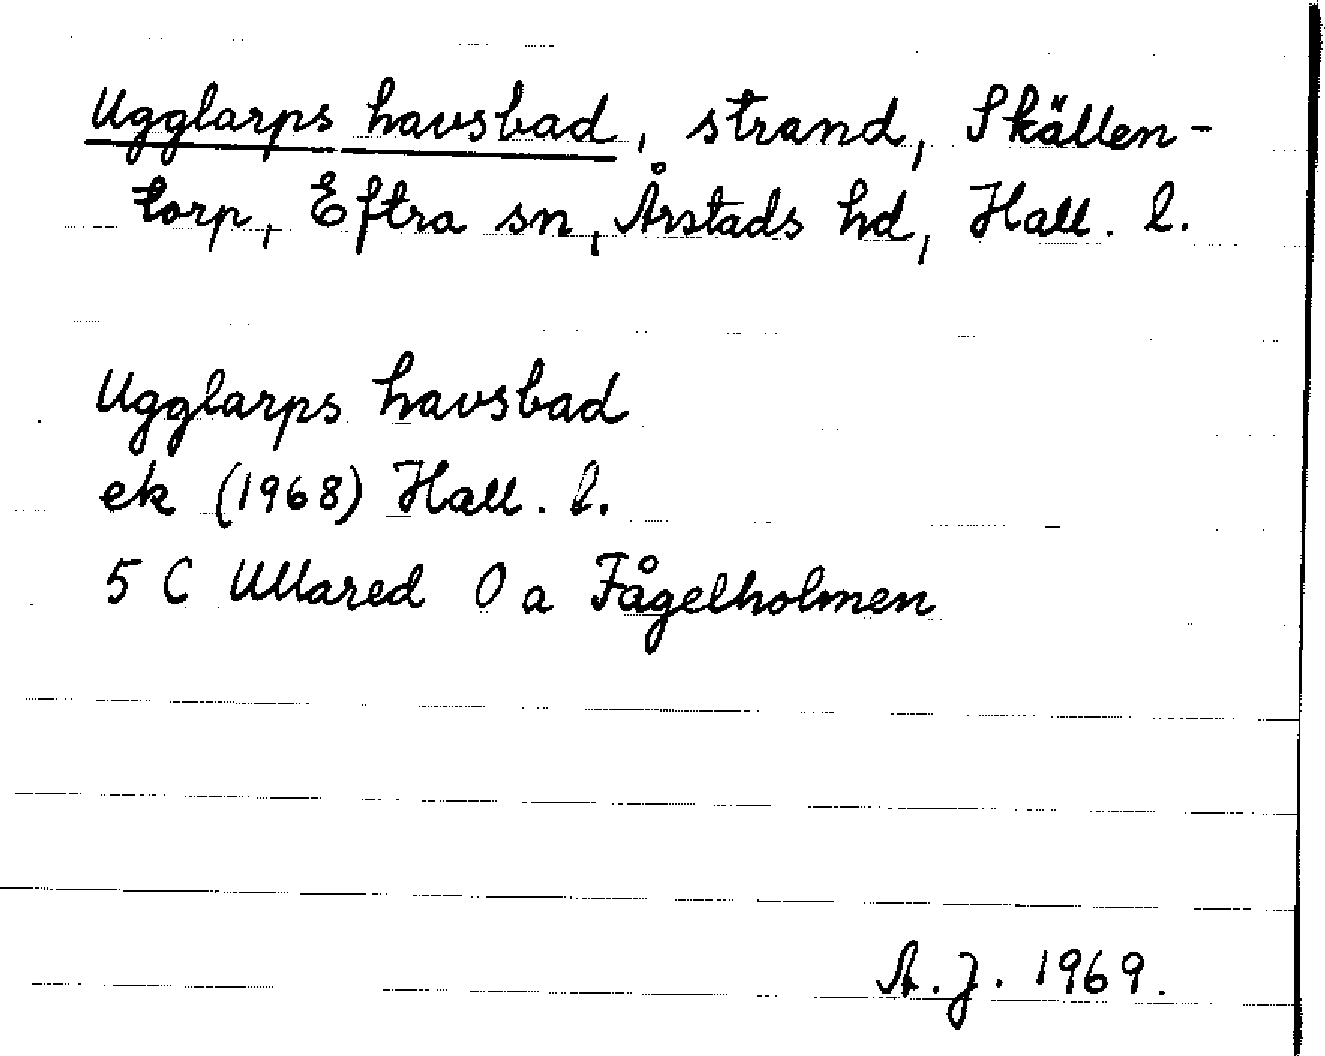 Ugglarps havsbad, strand, Skällen-
torp, Eftra sn, Årstads hd, Hall. l.
Ugglarps havsbad
ek (1968) Hall. l.
5 C Ullared 0 a Fågelholmen
A. J. 1969.